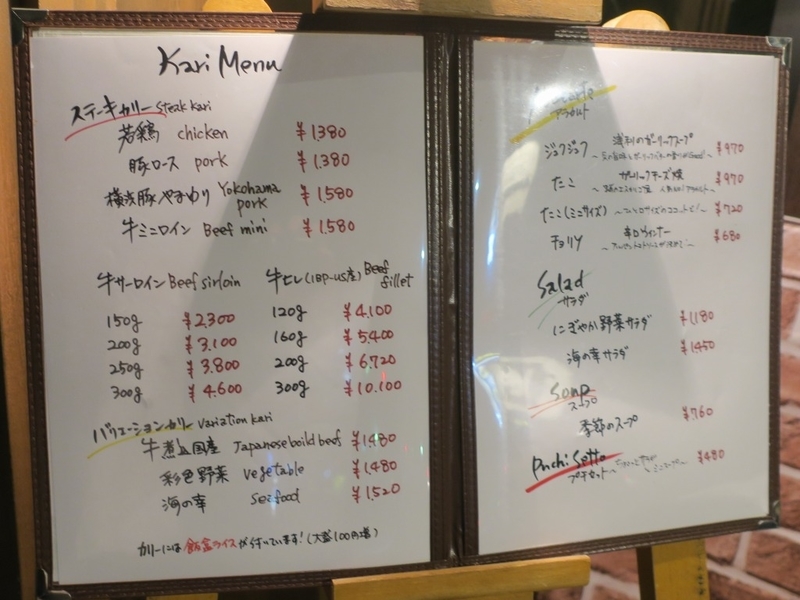 Kari Menu
ステーキカリー Steak kari
若鶏 chicken ¥1.380
豚ロース pork ¥1.380
横浜豚やまゆり Yokohama pork ¥1.580
牛ミニロイン Beef mini ¥1.580
牛サーロイン Beef sirloin
150g ¥2.300
200g ¥3.100
250g ¥3.800
300g ¥4.600
牛ヒレ (IBP-US産) Beef fillet
120g ¥4.100
160g ¥5.400
200g ¥6.720
300g ¥10.100
バリエーションカリー Variation kari
牛煮込 国産 Japanese boild beef ¥1,480
彩色野菜 vegetable ¥1480
海の幸 seafood ¥1,520
カリーには 飯盒ライスが付いています!(大盛100円増)
アラカルト
ジュクジュク 浅利のガーリックスープ ¥970
たこ ガーリックチーズ焼 ¥970
たこ(ミニサイズ) ¥720
チョリソ 辛口ウィンナー ¥680
Salad
サラダ
にぎやか野菜サラダ ¥1,180
海の幸サラダ ¥1,450
Soup
スープ
季節のスープ ¥760
Puchi Setto
プチセット ¥480